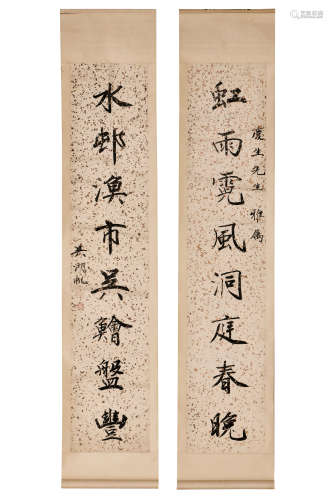 虹雨霓風洞庭春晚
慶生先生 雅属
水邨漁市吳鱠盤豐
吳湖帆